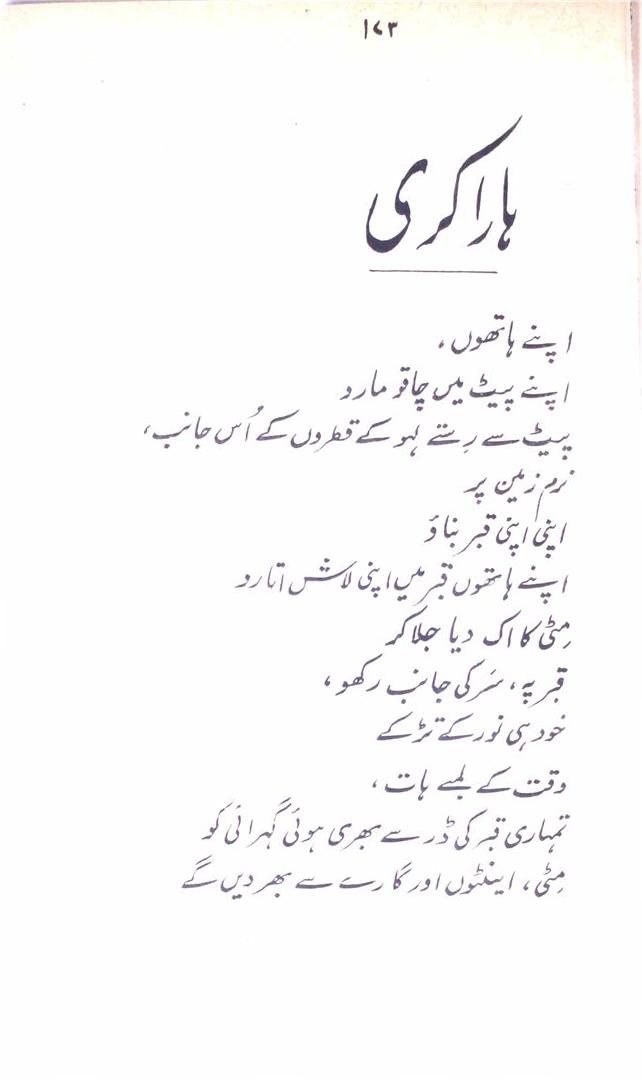 ۱۷۳
ہاراکری
اپنے ہاتھوں،
اپنے پیٹ میں چاقو مارد
پیٹ سے رِستے لہو کے قطروں کے اُس جانب،
نرم زمین پر
اپنی اپنی قبر بناؤ
اپنے ہاتھوں قبر میں اپنی لاش اتارد
مِٹی کا اک دیا جلا کر
قبر پہ، سَر کی جانب رکھو،
خود ہی نور کے تڑکے
وقت کے لمبے ہات،
تمہاری قبر کی ڈر سے بھری ہوئی گہرائی کو
مِٹی، اینٹوں اور گارے سے بھر دیں گے